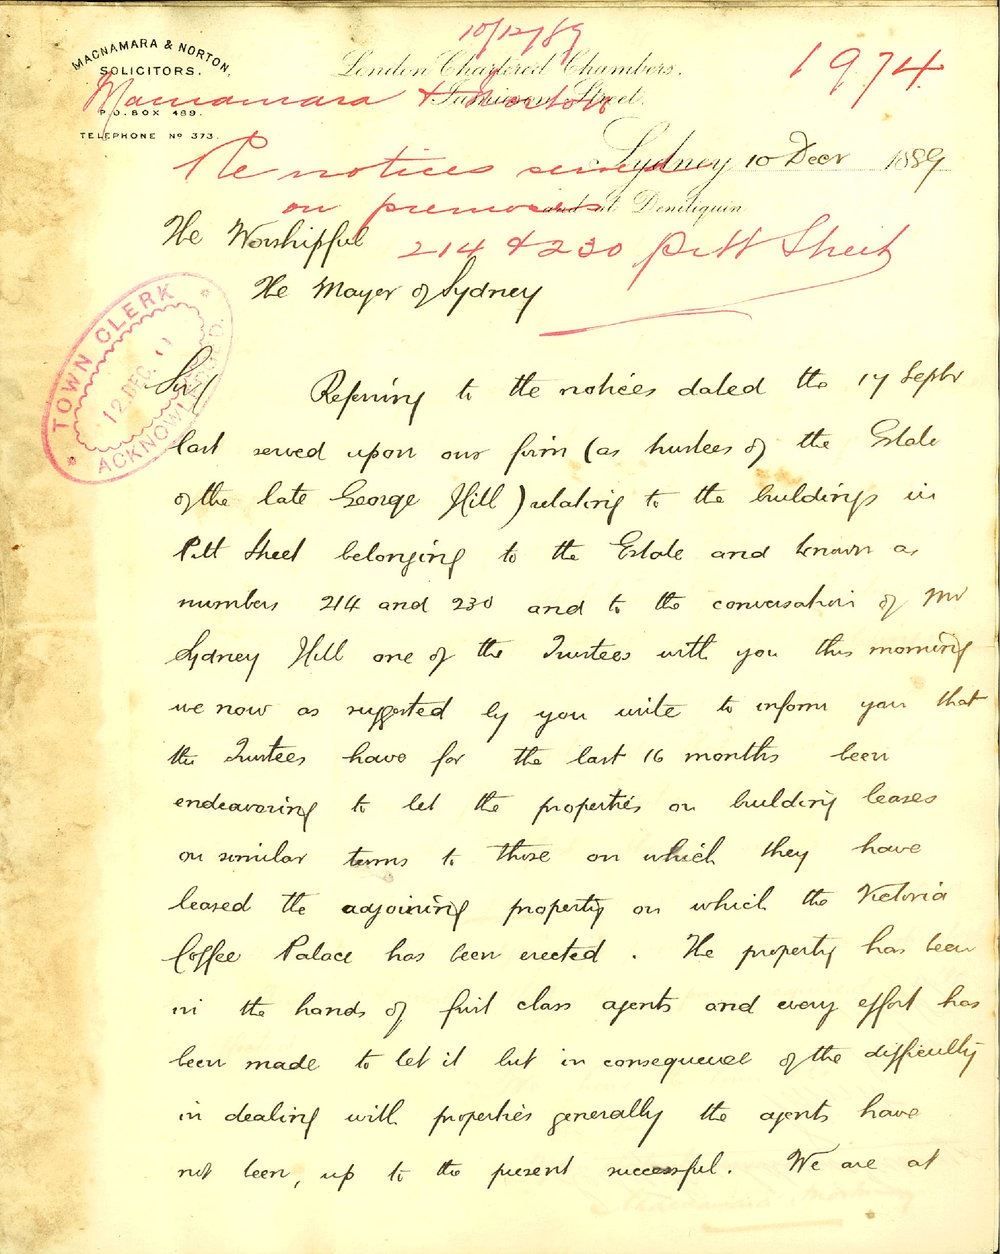 10/12/89
MACNAMARA & NORTON,
SOLICITORS.
P.O. BOX 489.
TELEPHONE Nº 373.
London Chartered Chambers.
Jamieson Street.
1974
Macnamara & Norton
Sydney 10 Decr 1889
Re notices served
on premises
and at Deniliquin
214 & 230 Pitt Street
The Worshipful
The Mayor of Sydney
TOWN CLERK
12 DEC.
ACKNOWLEDGED.
Sir/
Referring to the notices dated the 17 Septr
last served upon our firm (as trustees of the Estate
of the late George Hill) relating to the buildings in
Pitt Street belonging to the Estate and known as
numbers 214 and 230 and to the conversation of Mr
Sydney Hill one of the Trustees with you this morning
we now as suggested by you write to inform you that
the Trustees have for the last 16 months been
endeavoring to let the properties on building leases
on similar terms to those on which they have
leased the adjoining property on which the Victoria
Coffee Palace has been erected. The property has been
in the hands of first class agents and every effort has
been made to let it but in consequence of the difficulty
in dealing with properties generally the agents have
not been, up to the present successful. We are at